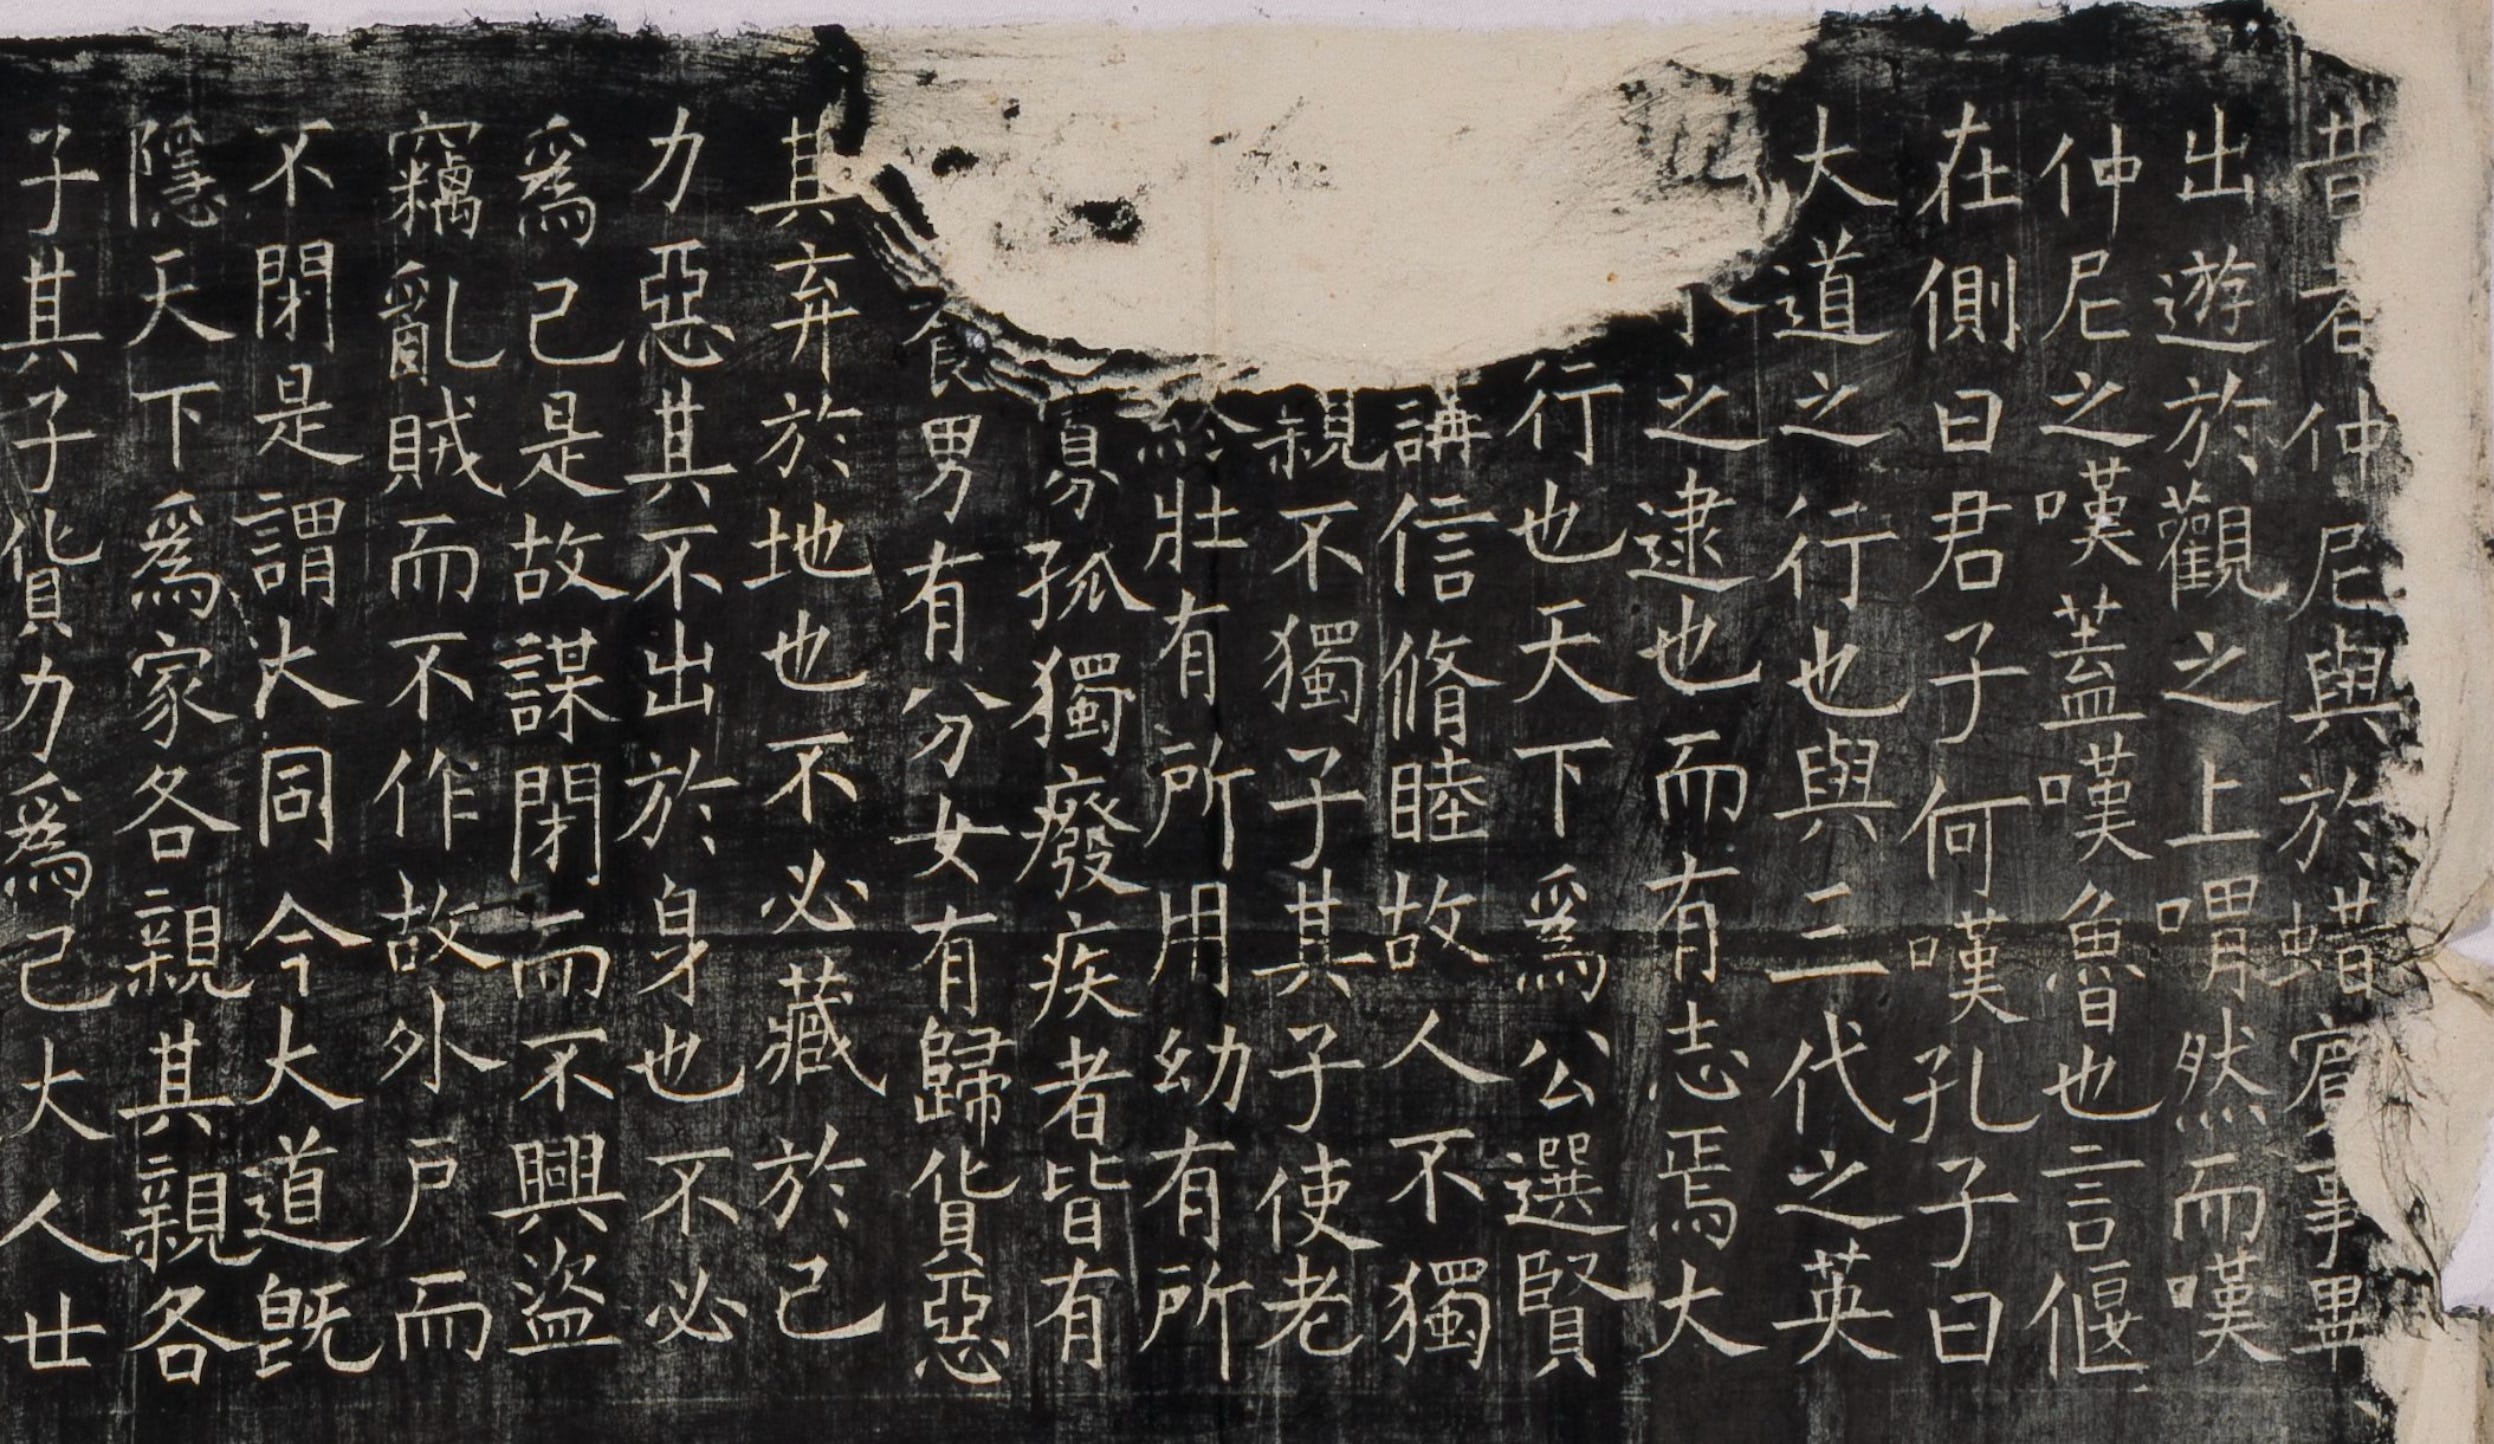 昔者仲尼與於蜡賓事畢
出遊於觀之上喟然而嘆
仲尼之嘆蓋嘆魯也言偃
在側曰君子何嘆孔子曰
大道之行也與三代之英
之逮也而有志焉大
行也天下爲公選賢
講信脩睦故人不獨
親不獨子其子使老
壯有所用幼有所
孤獨癈疾者皆有
男有分女有歸貨惡
其弃於地也不必藏於己
力惡其不出於身也不必
爲己是故謀閇而不興盜
竊亂賊而不作故外戶而
不閇是謂大同今大道旣
隱天下爲家各親其親各
子其子貨力爲己大人世